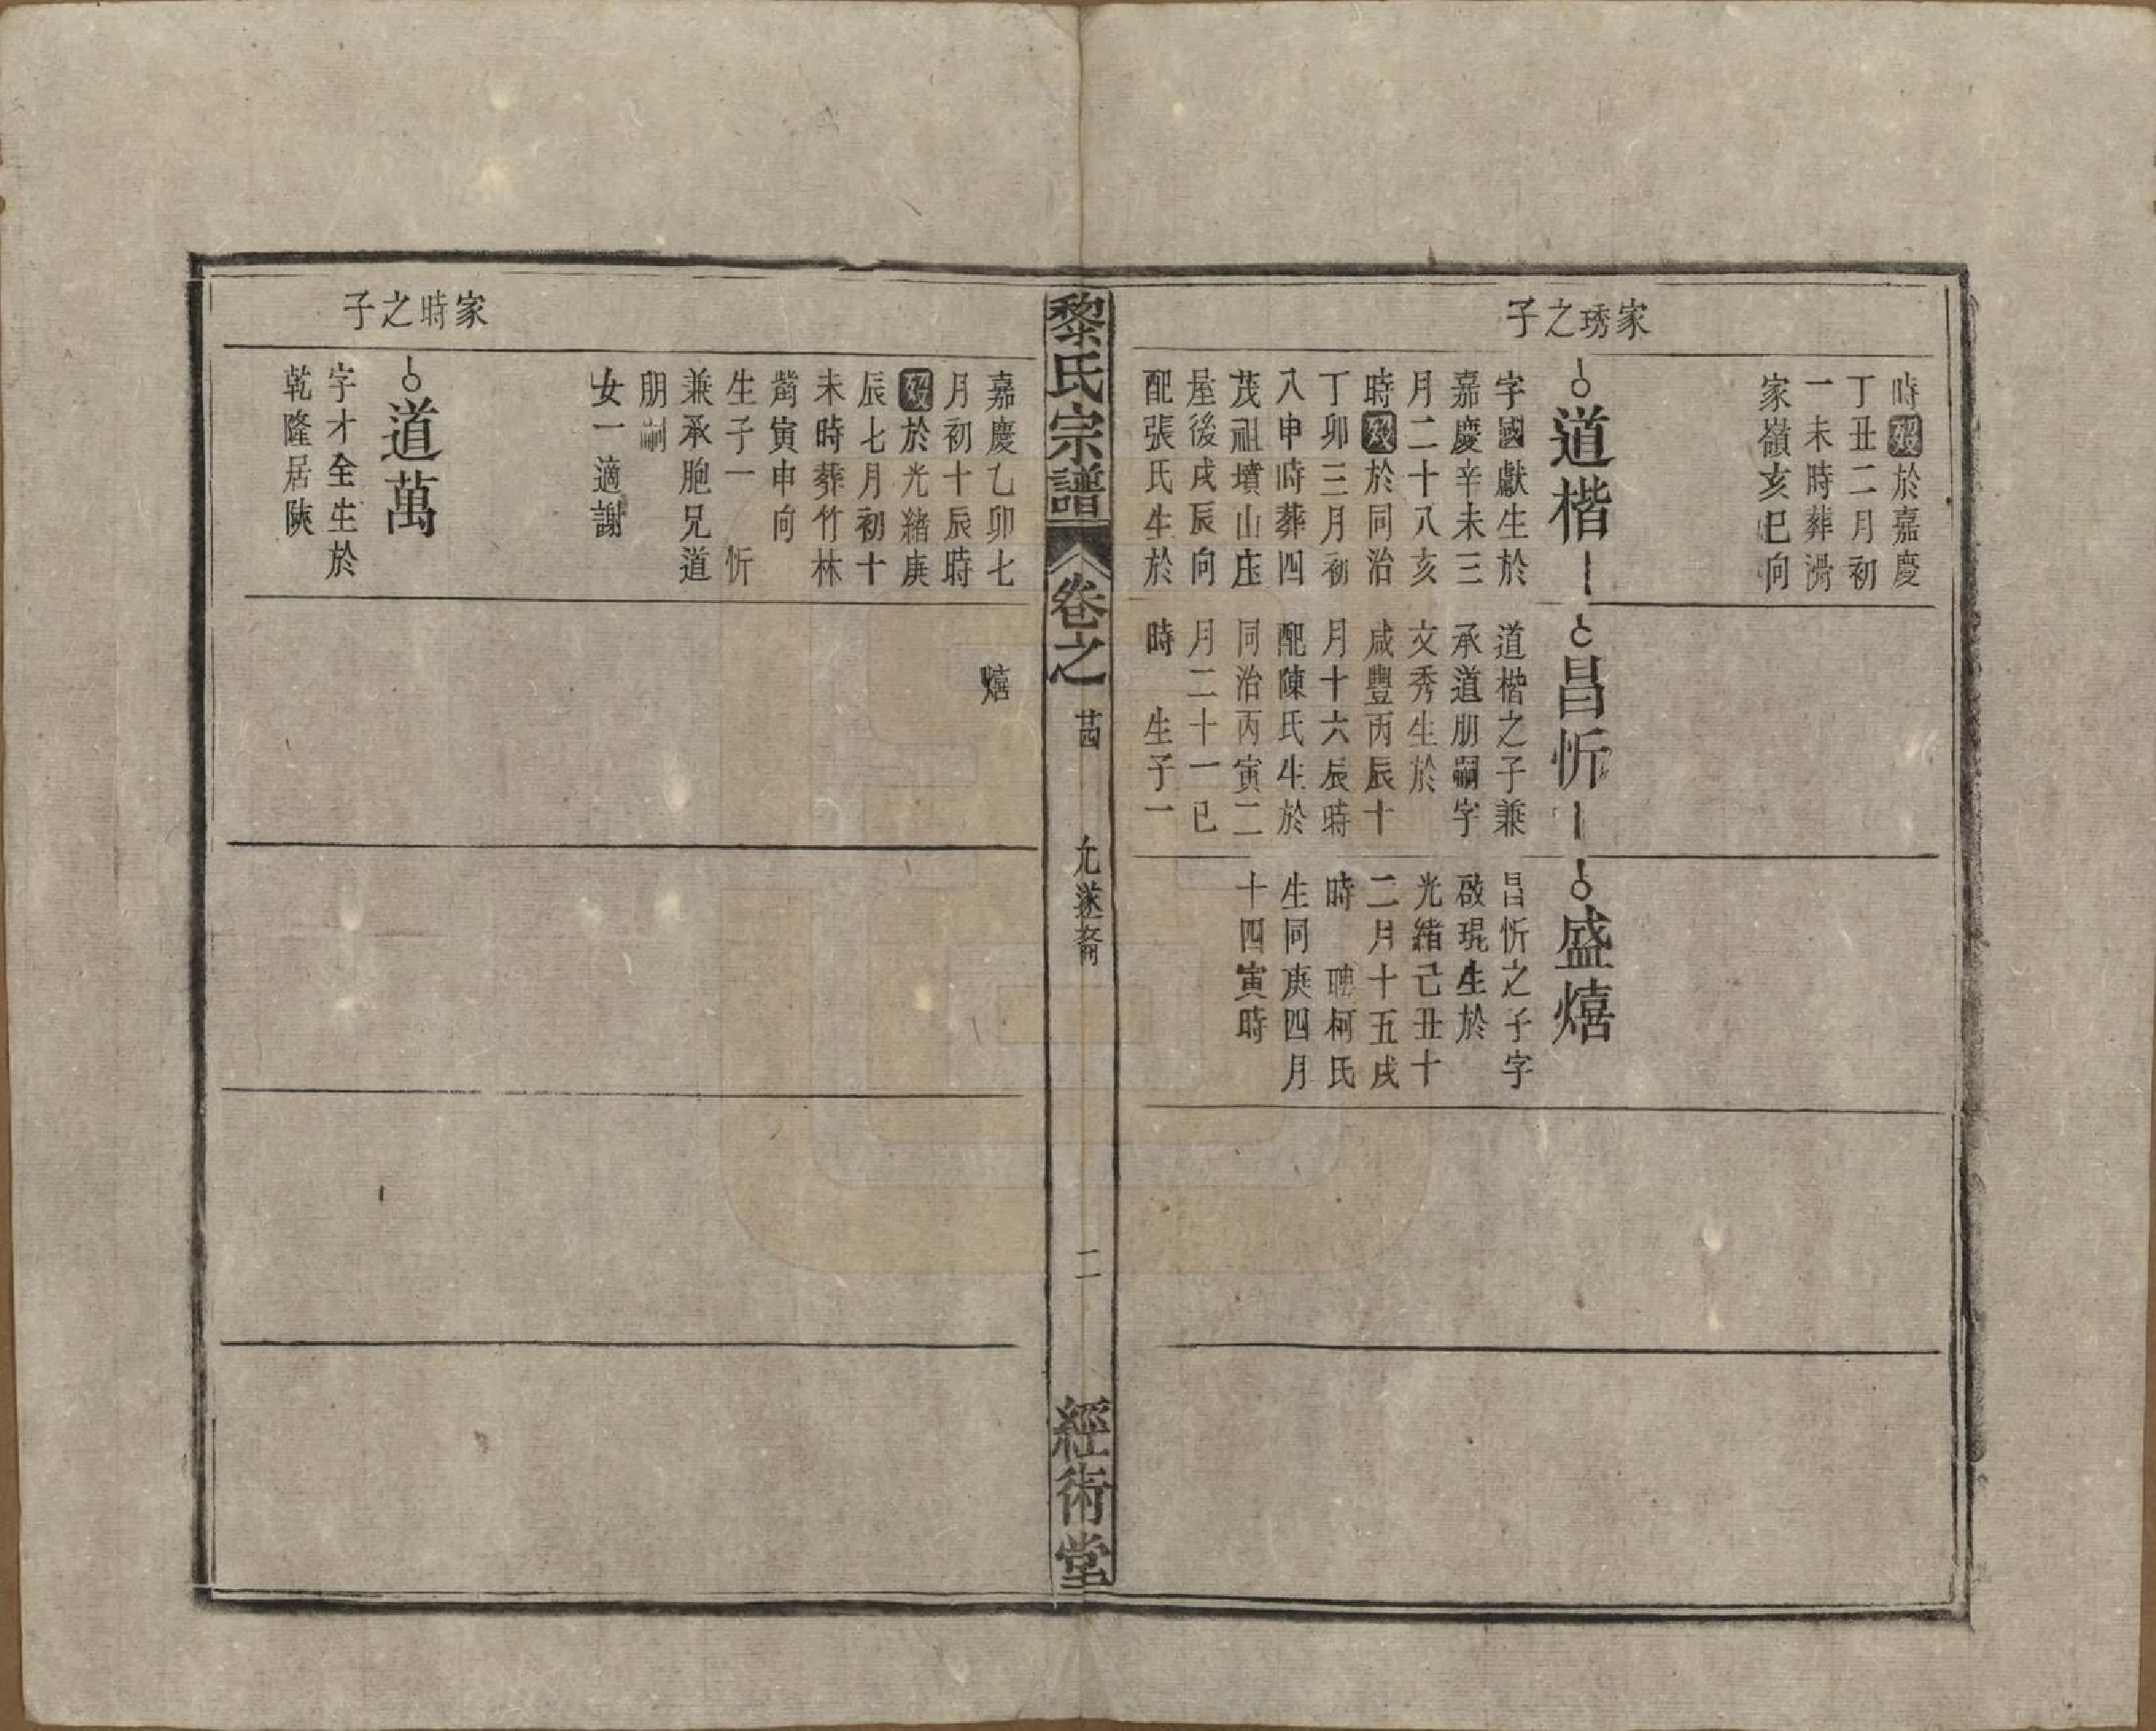 家琇之子
時歿於嘉慶
丁丑二月初
一未時葬滑
家嶺亥巳向
道楷
字國獻生於
嘉慶辛未三
月二十八亥
時歿於同治
丁卯三月初
八申時葬四
茂祖墳山庄
屋後戌辰向
配張氏生於
昌忻
道楷之子兼
承道朋嗣字
文秀生於
咸豐丙辰十
月十六辰時
配陳氏生於
同治丙寅二
月二十一巳
時 生子一
盛熺
昌忻之子字
啟琨生於
光緒己丑十
二月十五戌
時 聘柯氏
生同庚四月
十四寅時
黎氏宗譜
卷之
苖
九遂裔
二
經術堂
家時之子
嘉慶乙卯七
月初十辰時
歿於光緒庚
辰七月初十
未時葬竹林
嵛寅申向
生子一 忻
兼承胞兄道
朋嗣
女一適謝
熺
道萬
字才全生於
乾隆居陝